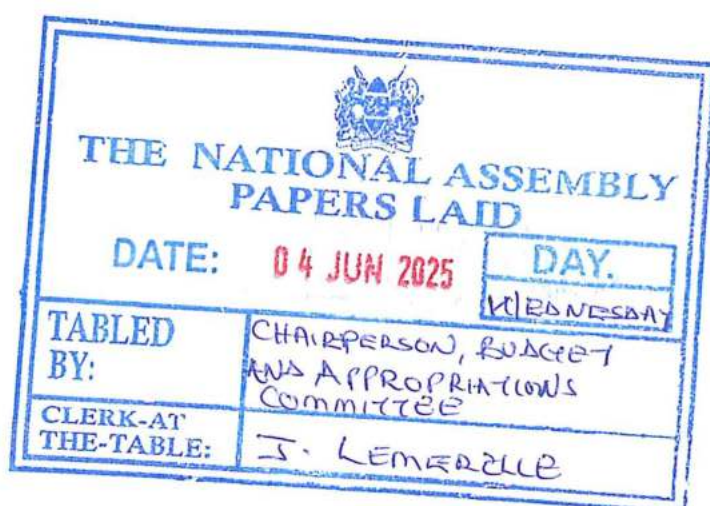 THE NATIONAL ASSEMBLY
PAPERS LAID
DATE: 04 JUN 2025
DAY.
WEDNESDAY
TABLED
BY:
CHAIRPERSON, BUDGET
AND APPROPRIATIONS
COMMITTEE
CLERK-AT
THE-TABLE:
J. LEMERELLE